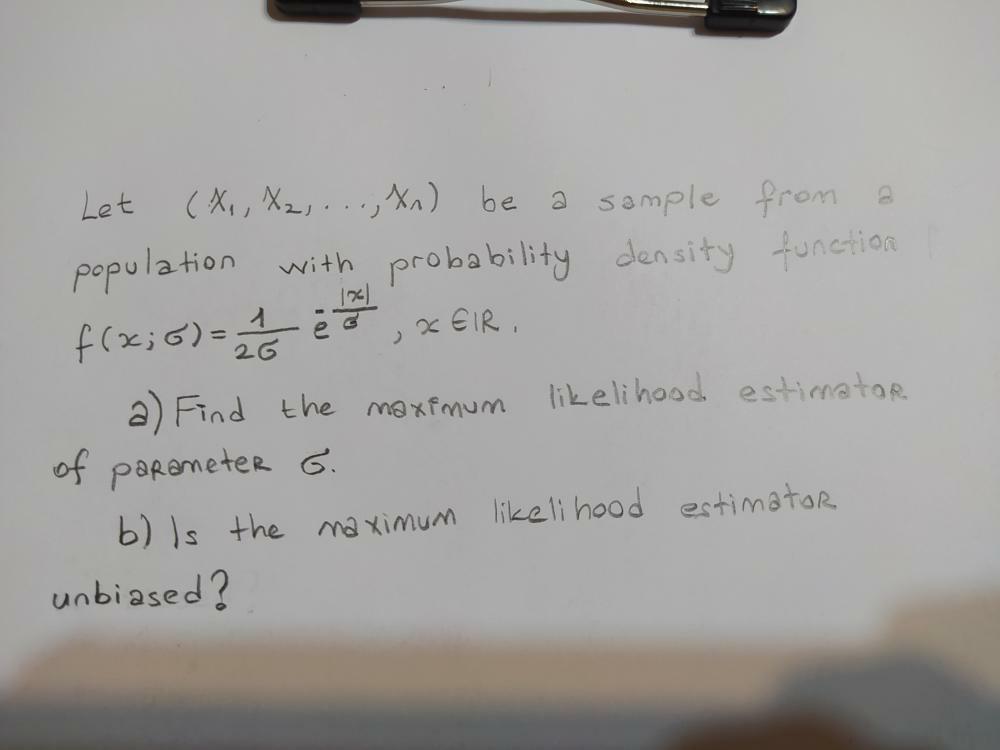 Let (X₁, X₂, ..., Xₙ) be a sample from a
population with probability density function
f(x; σ) = 1/(2σ) e^(-|x|/σ), x ∈ ℝ.
a) Find the maximum likelihood estimator
of parameter σ.
b) Is the maximum likelihood estimator
unbiased?